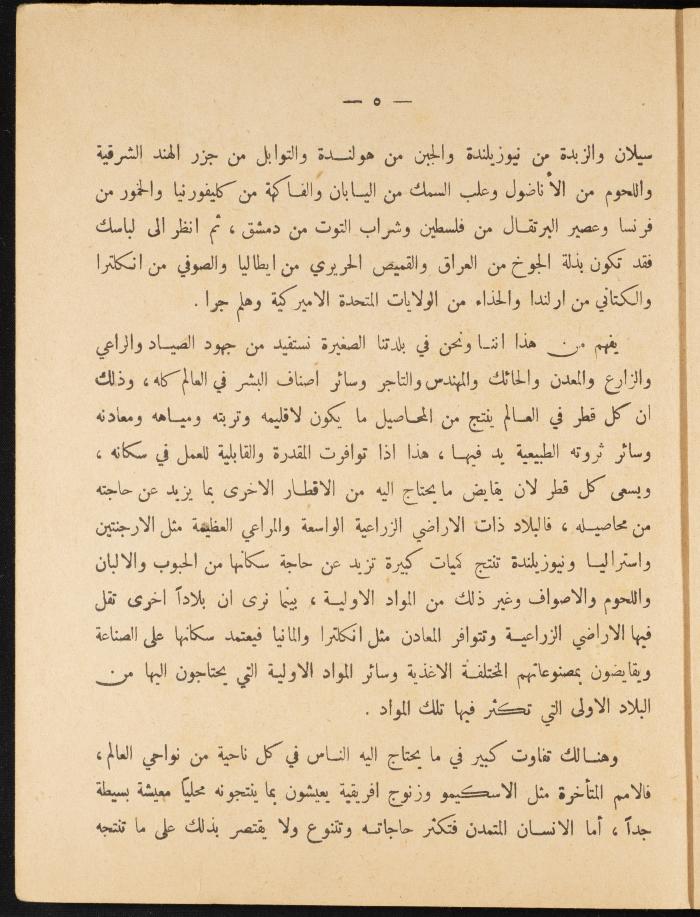 — ٥ —
سيلان والزبدة من نيوزيلندة والجبن من هولندة والتوابل من جزر الهند الشرقية
واللحوم من الأناضول وعلب السمك من اليابان والفاكهة من كليفورنيا والخمور من
فرنسا وعصير البرتقال من فلسطين وشراب التوت من دمشق ، ثم انظر الى لباسك
فقد تكون بذلة الجوخ من العراق والقميص الحريري من ايطاليا والصوفي من انكلترا
والكتاني من ارلندا والحذاء من الولايات المتحدة الاميركية وهلم جرا .
يفهم من هذا اننا ونحن في بلدتنا الصغيرة نستفيد من جهود الصياد والراعي
والزارع والمعدن والحائك والمهندس والتاجر وسائر اصناف البشر في العالم كله ، وذلك
ان كل قطر في العالم ينتج من المحاصيل ما يكون لاقليمه وتربته ومياهه ومعادنه
وسائر ثروته الطبيعية يد فيها ، هذا اذا توافرت المقدرة والقابلية للعمل في سكانه ،
ويسعى كل قطر لان يقايض ما يحتاج اليه من الاقطار الاخرى بما يزيد عن حاجته
من محاصيله ، فالبلاد ذات الاراضي الزراعية الواسعة والمراعي العظيمة مثل الارجنتين
واستراليا ونيوزيلندة تنتج كميات كبيرة تزيد عن حاجة سكانها من الحبوب والالبان
واللحوم والاصواف وغير ذلك من المواد الاولية ، بينما نرى ان بلاداً اخرى تقل
فيها الاراضي الزراعية وتتوافر المعادن مثل انكلترا والمانيا فيعتمد سكانها على الصناعة
ويقايضون بمصنوعاتهم المختلفة الاغذية وسائر المواد الاولية التي يحتاجون اليها من
البلاد الاولى التي تكثر فيها تلك المواد .
وهنالك تفاوت كبير في ما يحتاج اليه الناس في كل ناحية من نواحي العالم ،
فالامم المتأخرة مثل الاسكيمو وزنوج افريقية يعيشون بما ينتجونه محلياً معيشة بسيطة
جداً ، أما الانسان المتمدن فتكثر حاجاته وتتنوع ولا يقتصر بذلك على ما تنتجه